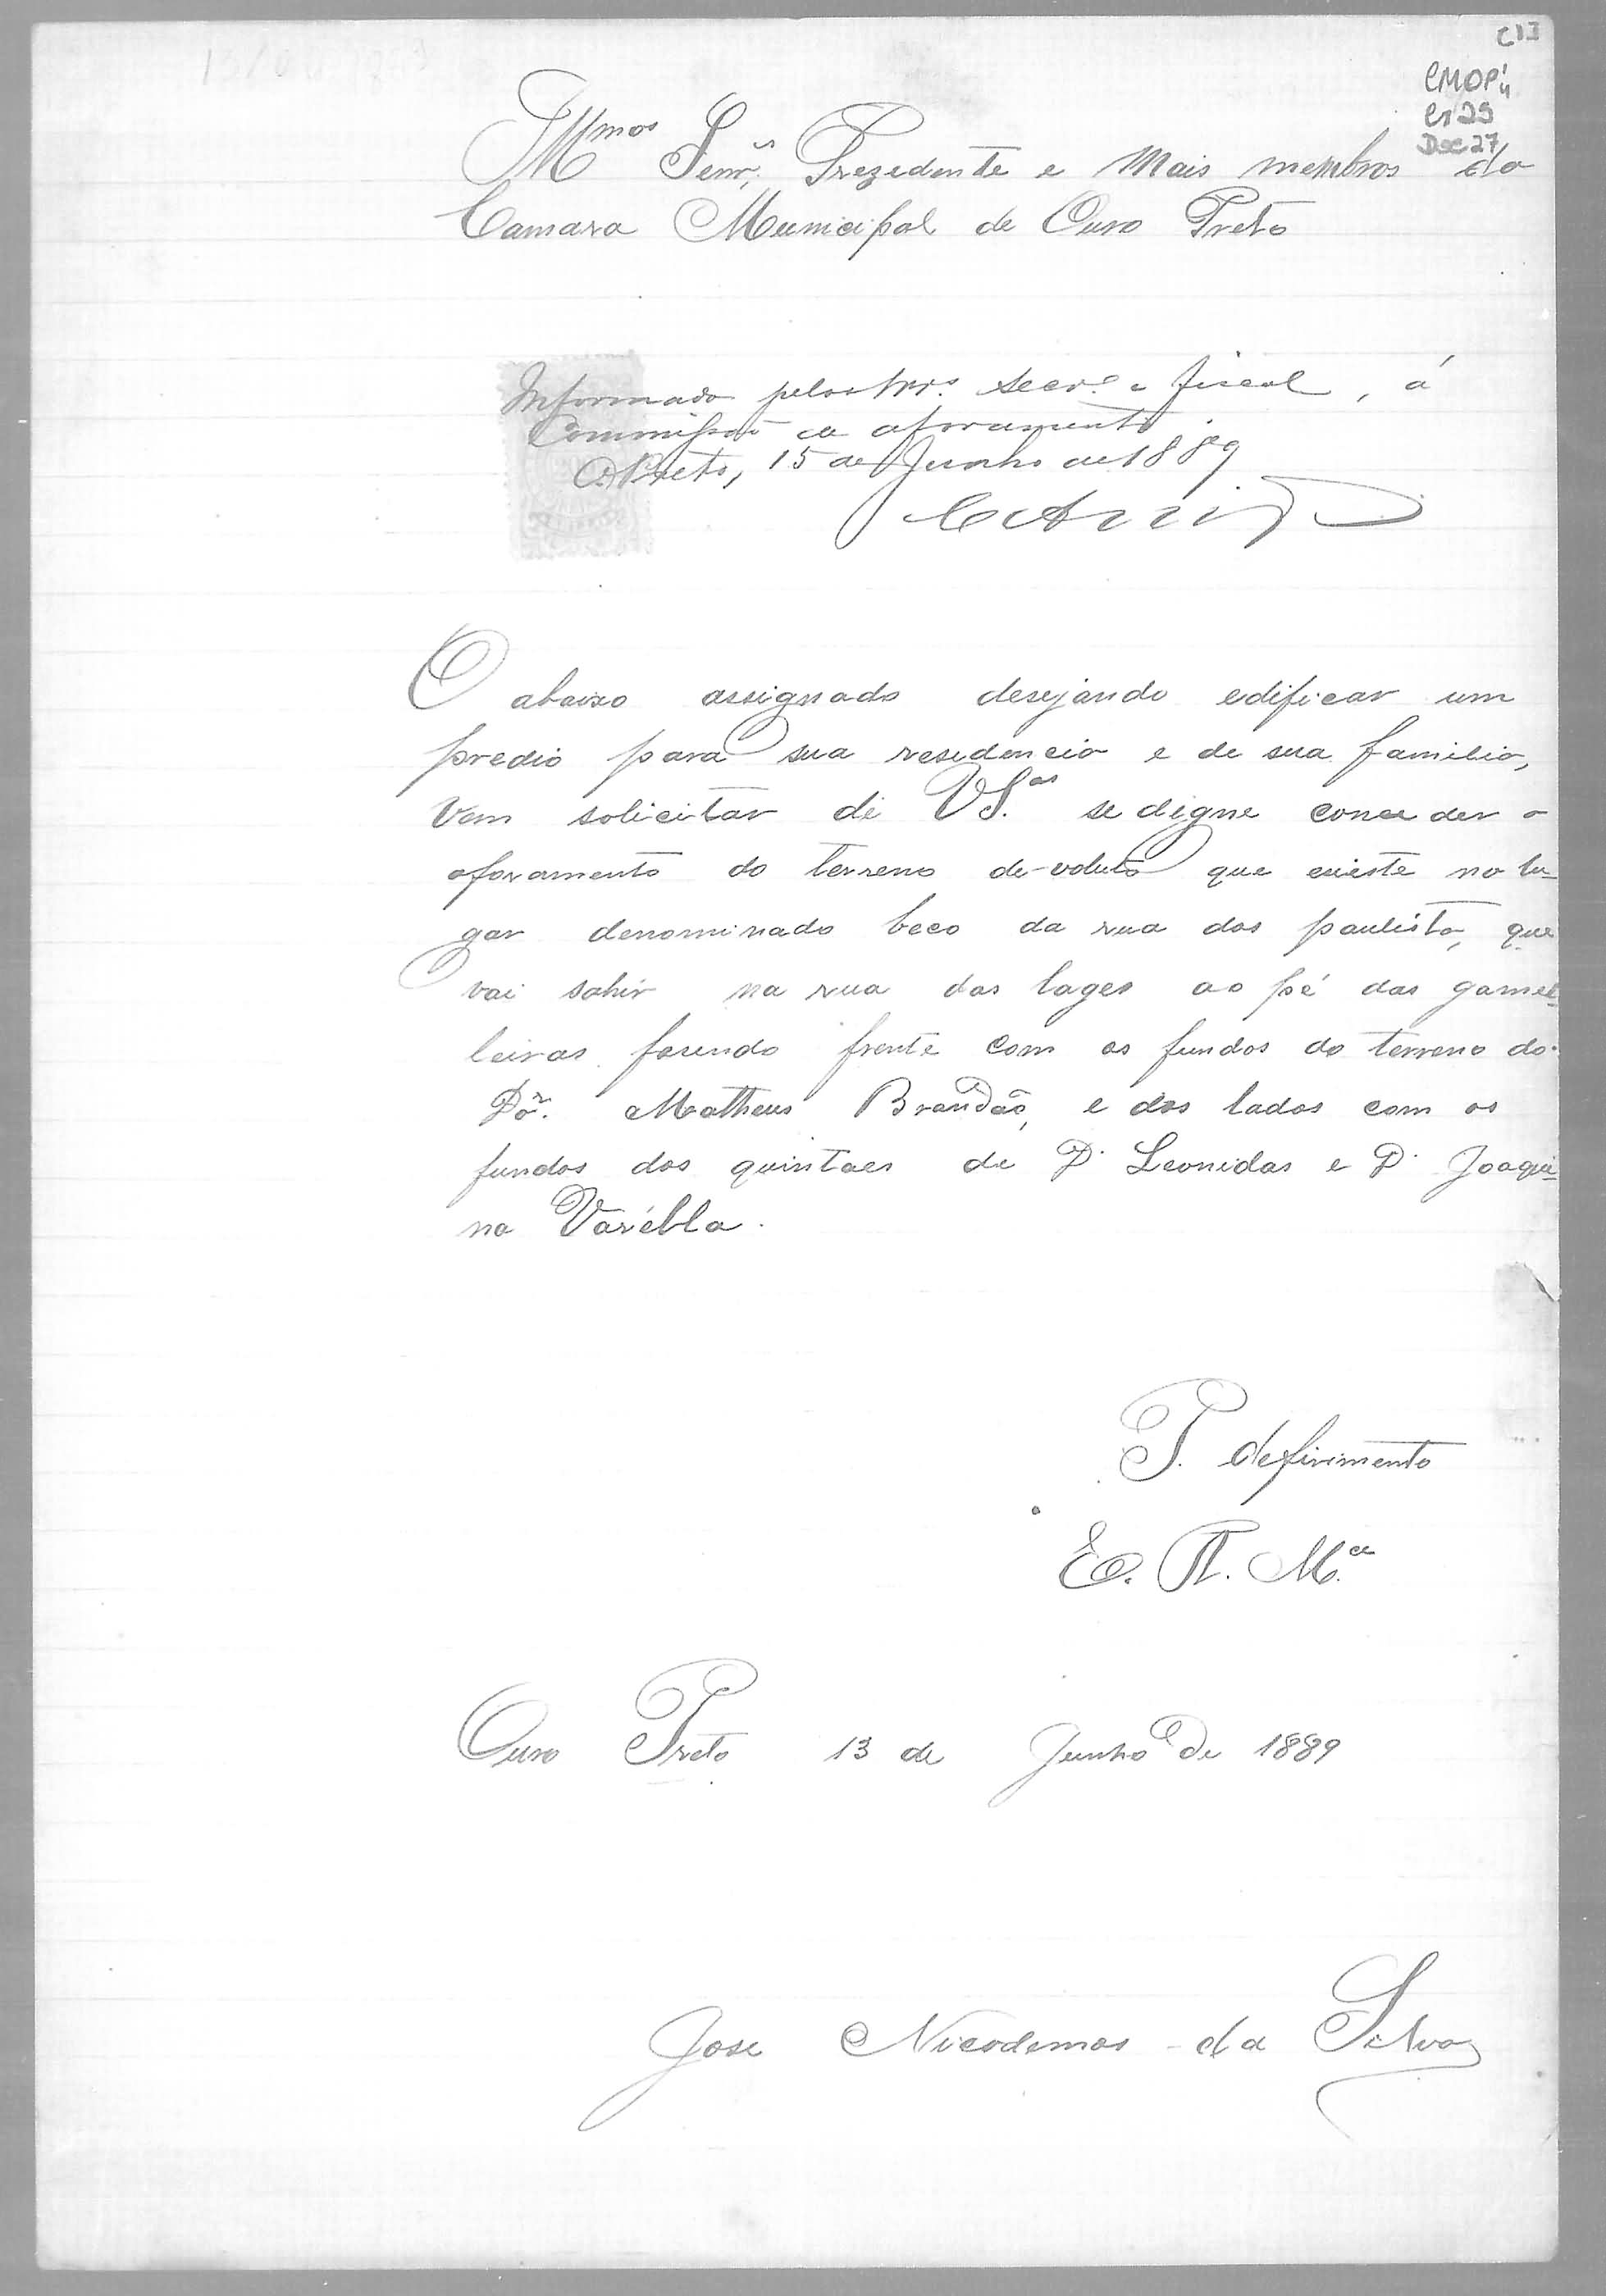 C13
CMOP 4
Cx 29
Doc 27
Illmos Senr. Prezedente e Mais membros da
Camara Municipal de Ouro Preto
Informado pelos Snrs. Secro. e fiscal, á
Commissão de aforamento.
O. Preto, 15 de Junho de 1889
O abaixo assignado desejando edificar um
predio para sua residencia e de sua familia,
Vem solicitar de VS.as se digne conceder o
aforamento do terreno de-voluto que existe no lu-
gar denominado beco da rua dos paulista, que
vai sahir na rua das lages ao pé das gamel-
leiras fasendo frente com os fundos do terreno do
Dor. Matheus Brandão, e dos lados com os
fundos dos quintaes de D. Leonidas e D. Joaqui-
na Varélla.
P. defirimento
E. R. M.ce
Ouro Preto 13 de Junho de 1889
Jose Nicodemos da Silva